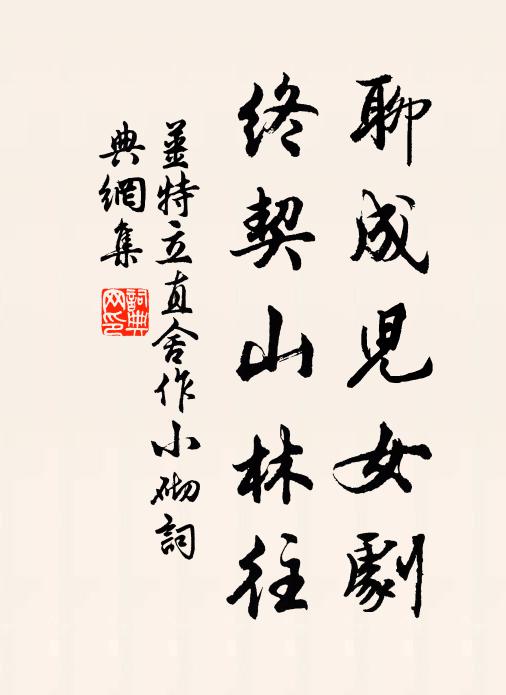 聊成児女劇
終契山林往
姜特立直舍作小砌詞
典網集
詞典網印